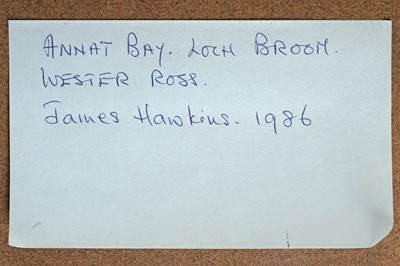 ANNAT BAY. LOCH BROOM.
WESTER ROSS.
James Hawkins. 1986